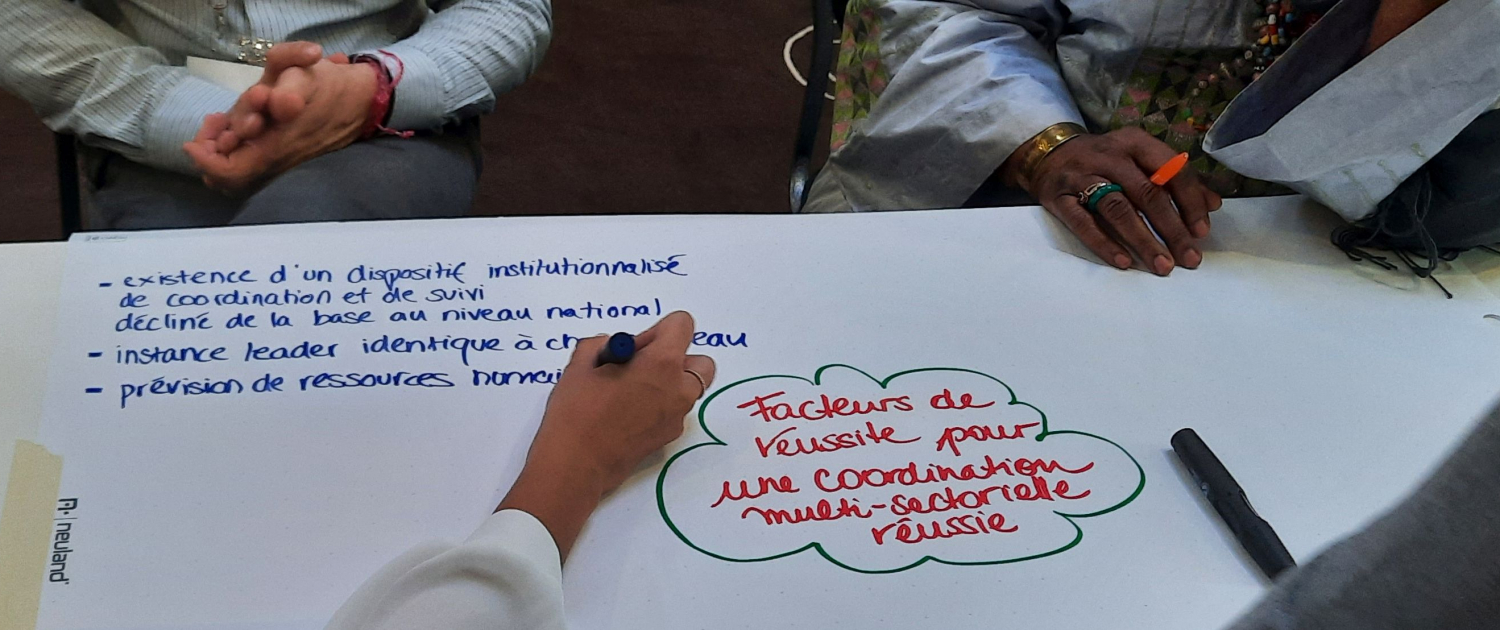 - existence d'un dispositif institutionnalisé
de coordination et de suivi
décliné de la base au niveau national
- instance leader identique à ch eau
- prévision de ressources humai
Facteurs de
réussite pour
une coordination
multi-sectorielle
réussie
neuland